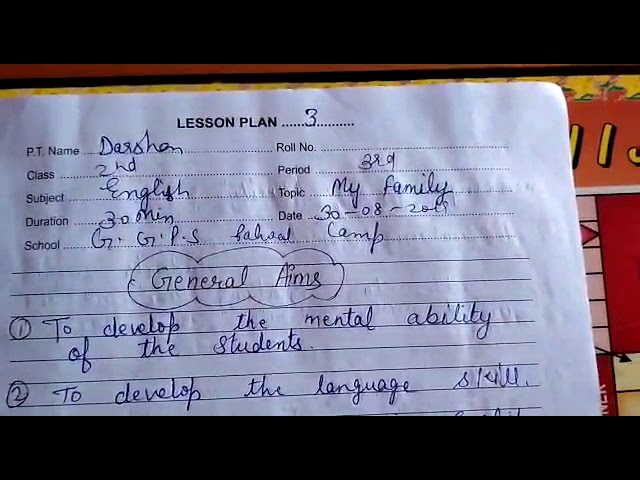 LESSON PLAN ......3..........
P.T. Name Darshan Roll No.
Class 2nd Period 3rd
Subject English Topic My family
Duration 30 Min Date 30-08-
School G. G. P. S Camp
General Aims
① To develop the mental ability
of the students.
② To develop the language skill.